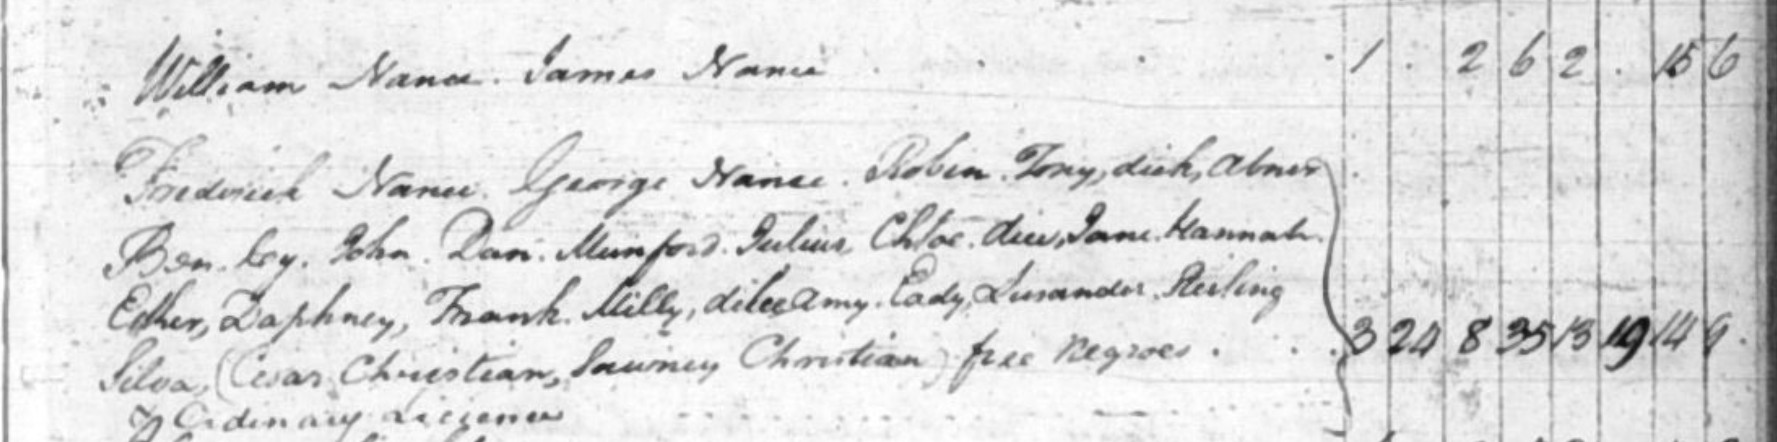 William Nance. James Nance 1 . 2 6 2 . 15 6
Frederick Nance. George Nance. Robin. Tony, dick, Abner
Ben. Coy. John. Dan. Munford. Julius Chloe. Dice, Jane. Hannah.
Esther, Daphney, Frank. Milly, Amy. Eady, Sterling
Silva, (Cesar Christian, Sawney Christian) free Negroes. 3 24 8 35 13 19 14 9
& Ordinary License